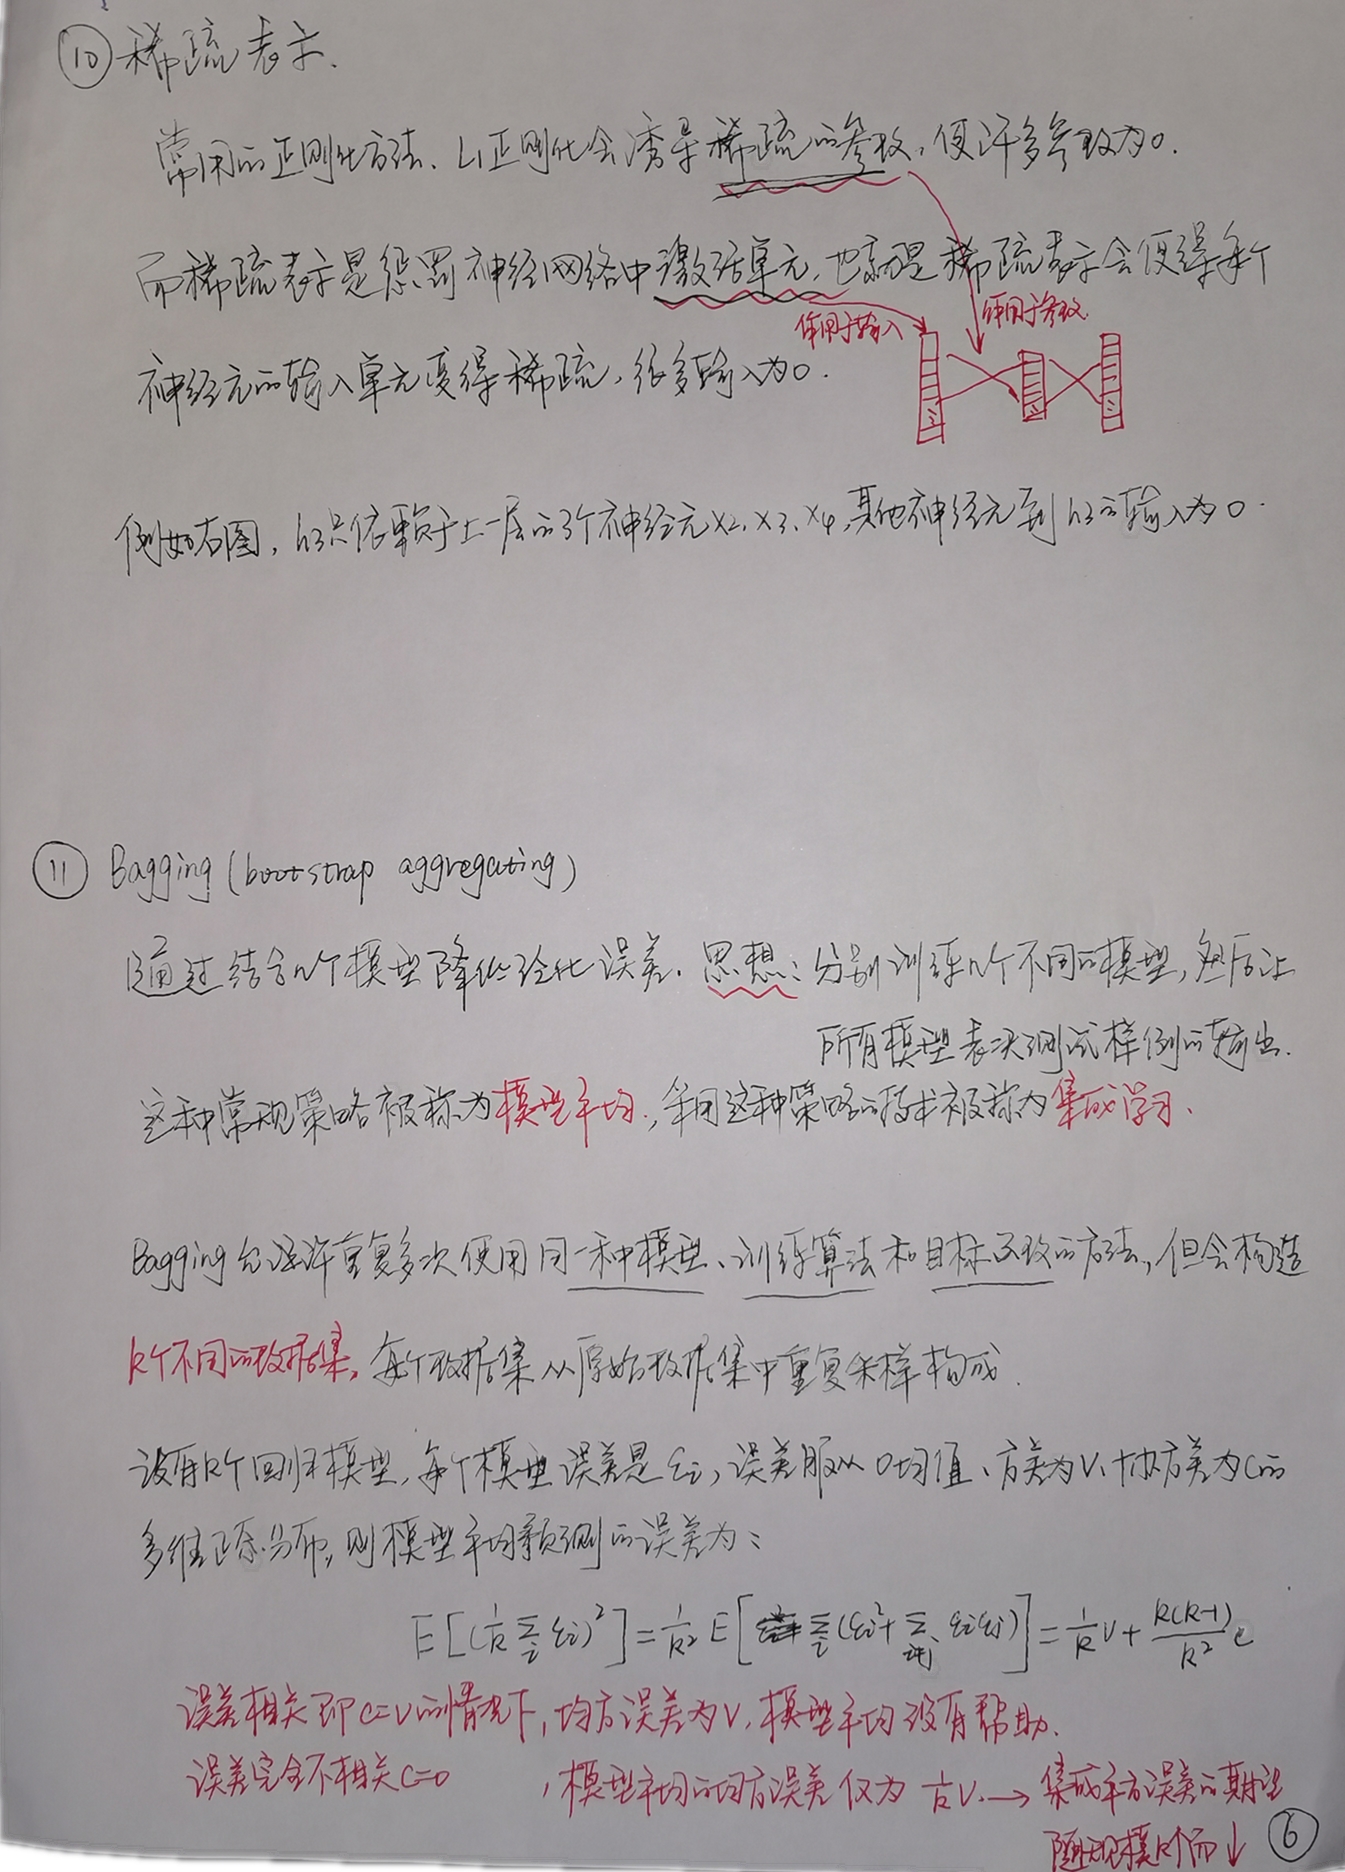 ⑩稀疏表示.
常用的正则化方法、L1正则化会诱导稀疏的参数,使许多参数为0.
而稀疏表示是惩罚神经网络中激活单元,也就是稀疏表示会使得每个
作用于输入 作用于参数
神经元的输入单元变得稀疏,很多输入为0.
例如右图,h3只依赖于上一层的3个神经元x2、x3、x4,其他神经元到h3的输入为0.
⑪ Bagging(bootstrap aggregating)
通过结合n个模型降低泛化误差. 思想:分别训练n个不同的模型,然后让
所有模型表决测试样例的输出.
这种常规策略被称为模型平均,采用这种策略的技术被称为集成学习、
Bagging允许重复多次使用同一种模型、训练算法和目标函数的方法,但会构造
k个不同的数据集,每个数据集从原始数据集中重复采样构成.
设有k个回归模型,每个模型误差是εi,误差服从0均值、方差为v、协方差为c的
多维正态分布,则模型平均预测的误差为:
E[(1/k Σi εi)²]=1/k² E[Σi(εi²+Σi≠j εiεj)]=1/k v+k(k-1)/k² c
误差相关即c=v的情况下,均方误差为v,模型平均没有帮助.
误差完全不相关c=0 ,模型平均的均方误差仅为 1/k v.→集成平方误差的期望
随规模k个而↓
⑥